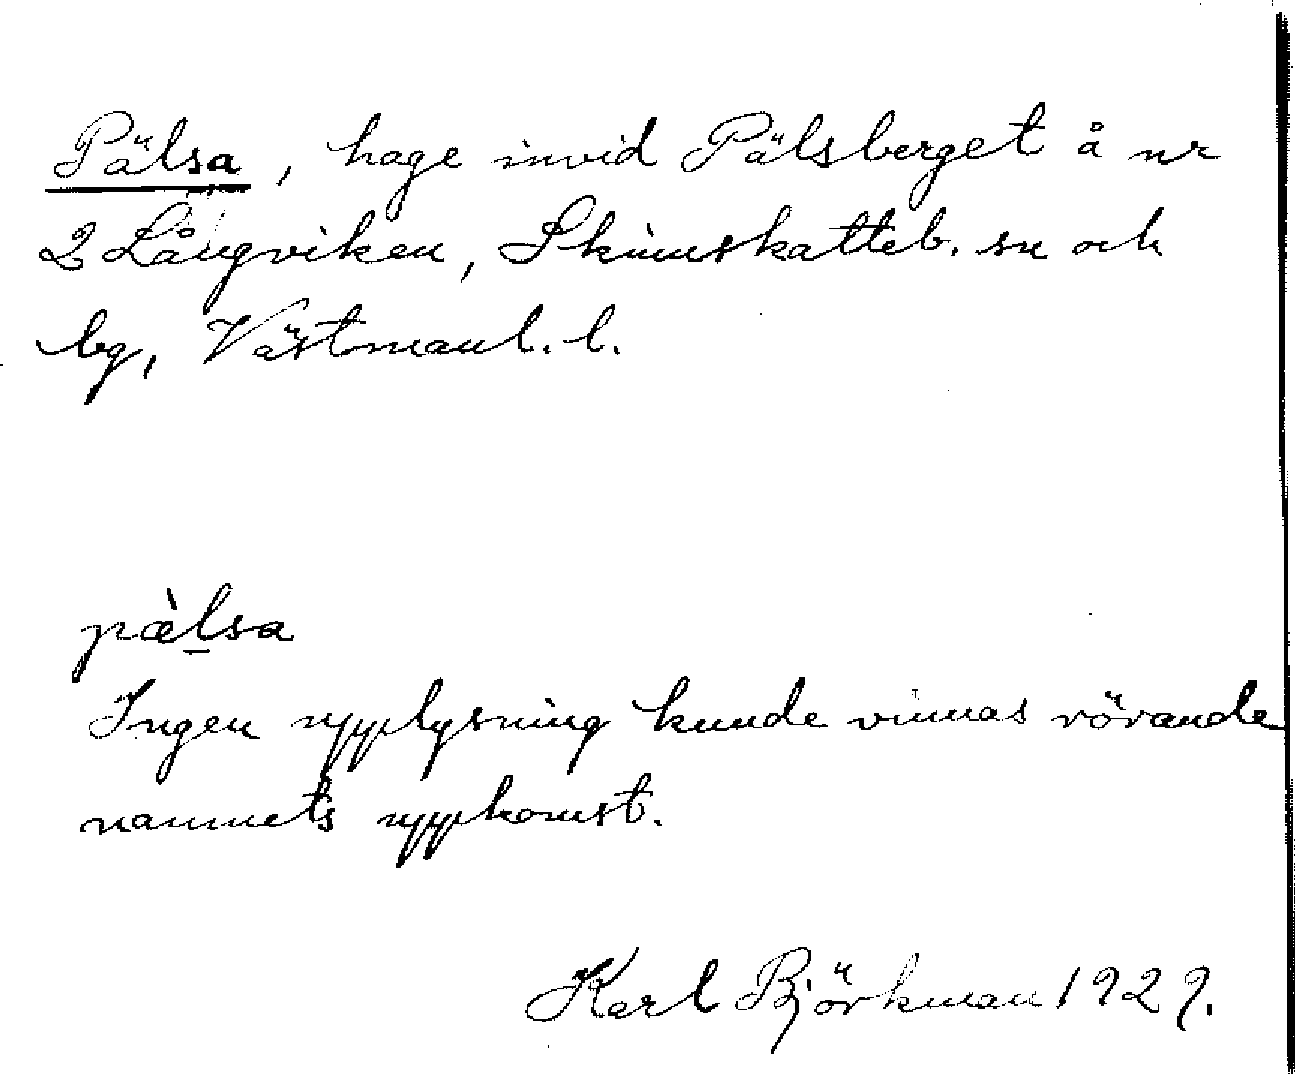 Pälsa, hage invid Pälsberget å nr
2 Långviken, Skinnskatteb. sn och
bg, Västmanl. l.
pæ̀l̠sa
Ingen upplysning kunde vinnas rörande
namnets uppkomst.
Karl Björkman 1929.